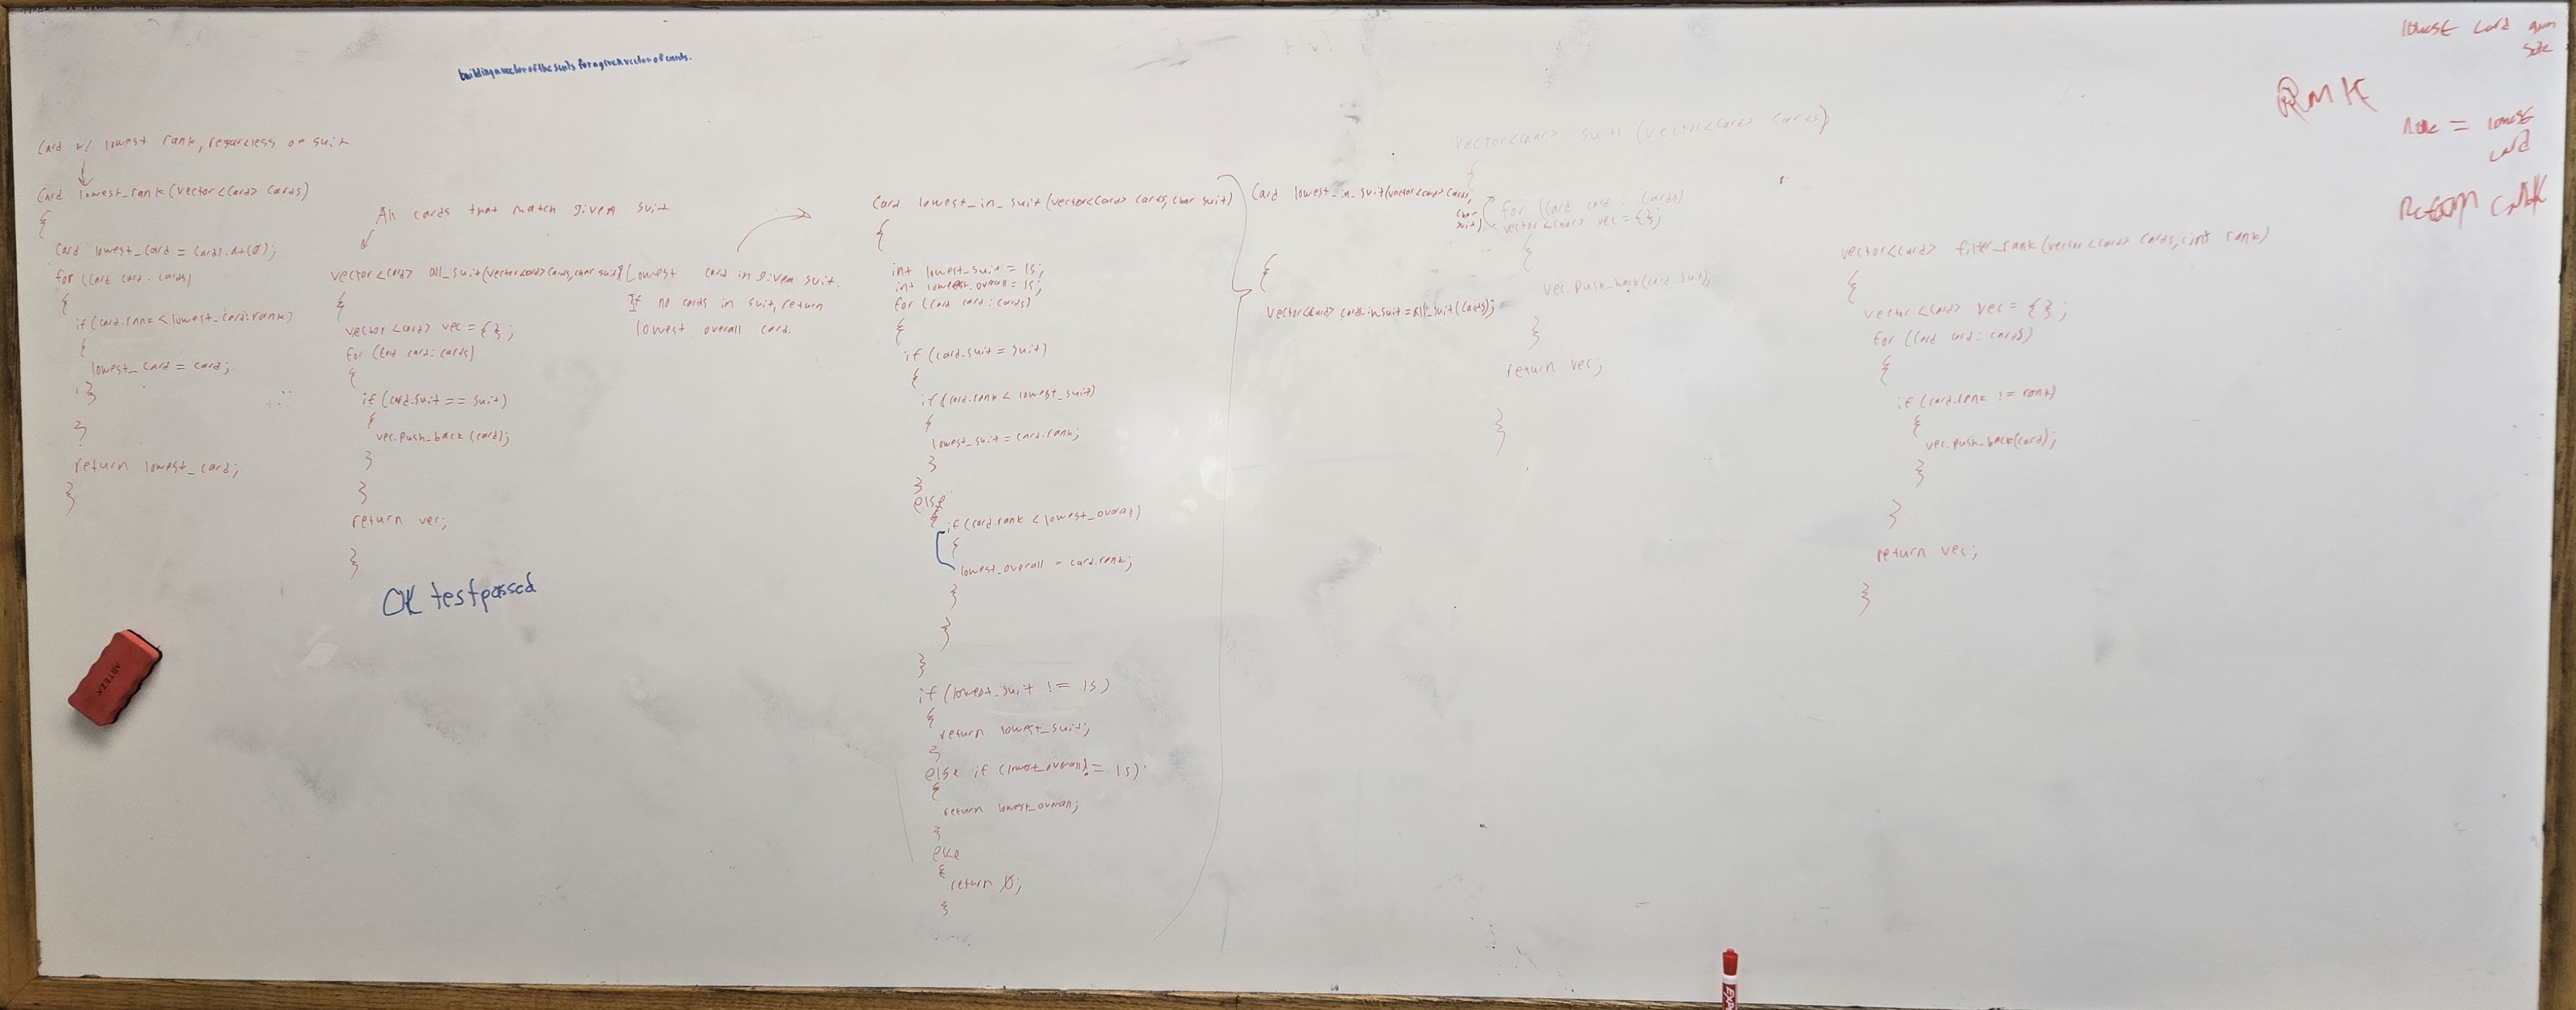 building a vector of the suits for a given vector of cards.
Card w/ lowest rank, regardless of suit
Card lowest_rank(vector<Card> cards)
{
Card lowest_card = cards.at(0);
for (Card card : cards)
{
if (card.rank < lowest_card.rank)
{
lowest_card = card;
}
}
return lowest_card;
}
All cards that match given suit
vector<Card> all_suit(vector<Card> cards, char suit)
{
vector<Card> vec = {};
for (Card card: cards)
{
if (card.suit == suit)
{
vec.push_back(card);
}
}
return vec;
}
OK test passed
Lowest card in given suit.
If no cards in suit, return
lowest overall card.
Card lowest_in_suit(vector<Card> cards, char suit)
{
int lowest_suit = 15;
int lowest_overall = 15;
for (Card card: cards)
{
if (card.suit = suit)
{
if (card.rank < lowest_suit)
{
lowest_suit = card.rank;
}
}
else
{
if (card.rank < lowest_overall)
{
lowest_overall = card.rank;
}
}
}
if (lowest_suit != 15)
{
return lowest_suit;
}
else if (lowest_overall != 15)
{
return lowest_overall;
}
else
{
return 0;
}
Card lowest_in_suit(vector<card> cards,
char
suit)
{
vector<card> cards_in_suit = all_suit(cards);
vector<char> suits (vector<Card> cards)
{
for (Card card : cards)
vector<char> vec = {};
{
vec.push_back(card.suit);
}
return vec;
}
vector<Card> filter_rank(vector<Card> cards, int rank)
{
vector<Card> vec = {};
for (Card card: cards)
{
if (card.rank != rank)
{
vec.push_back(card);
}
}
return vec;
}
lowest card
= lowest
card